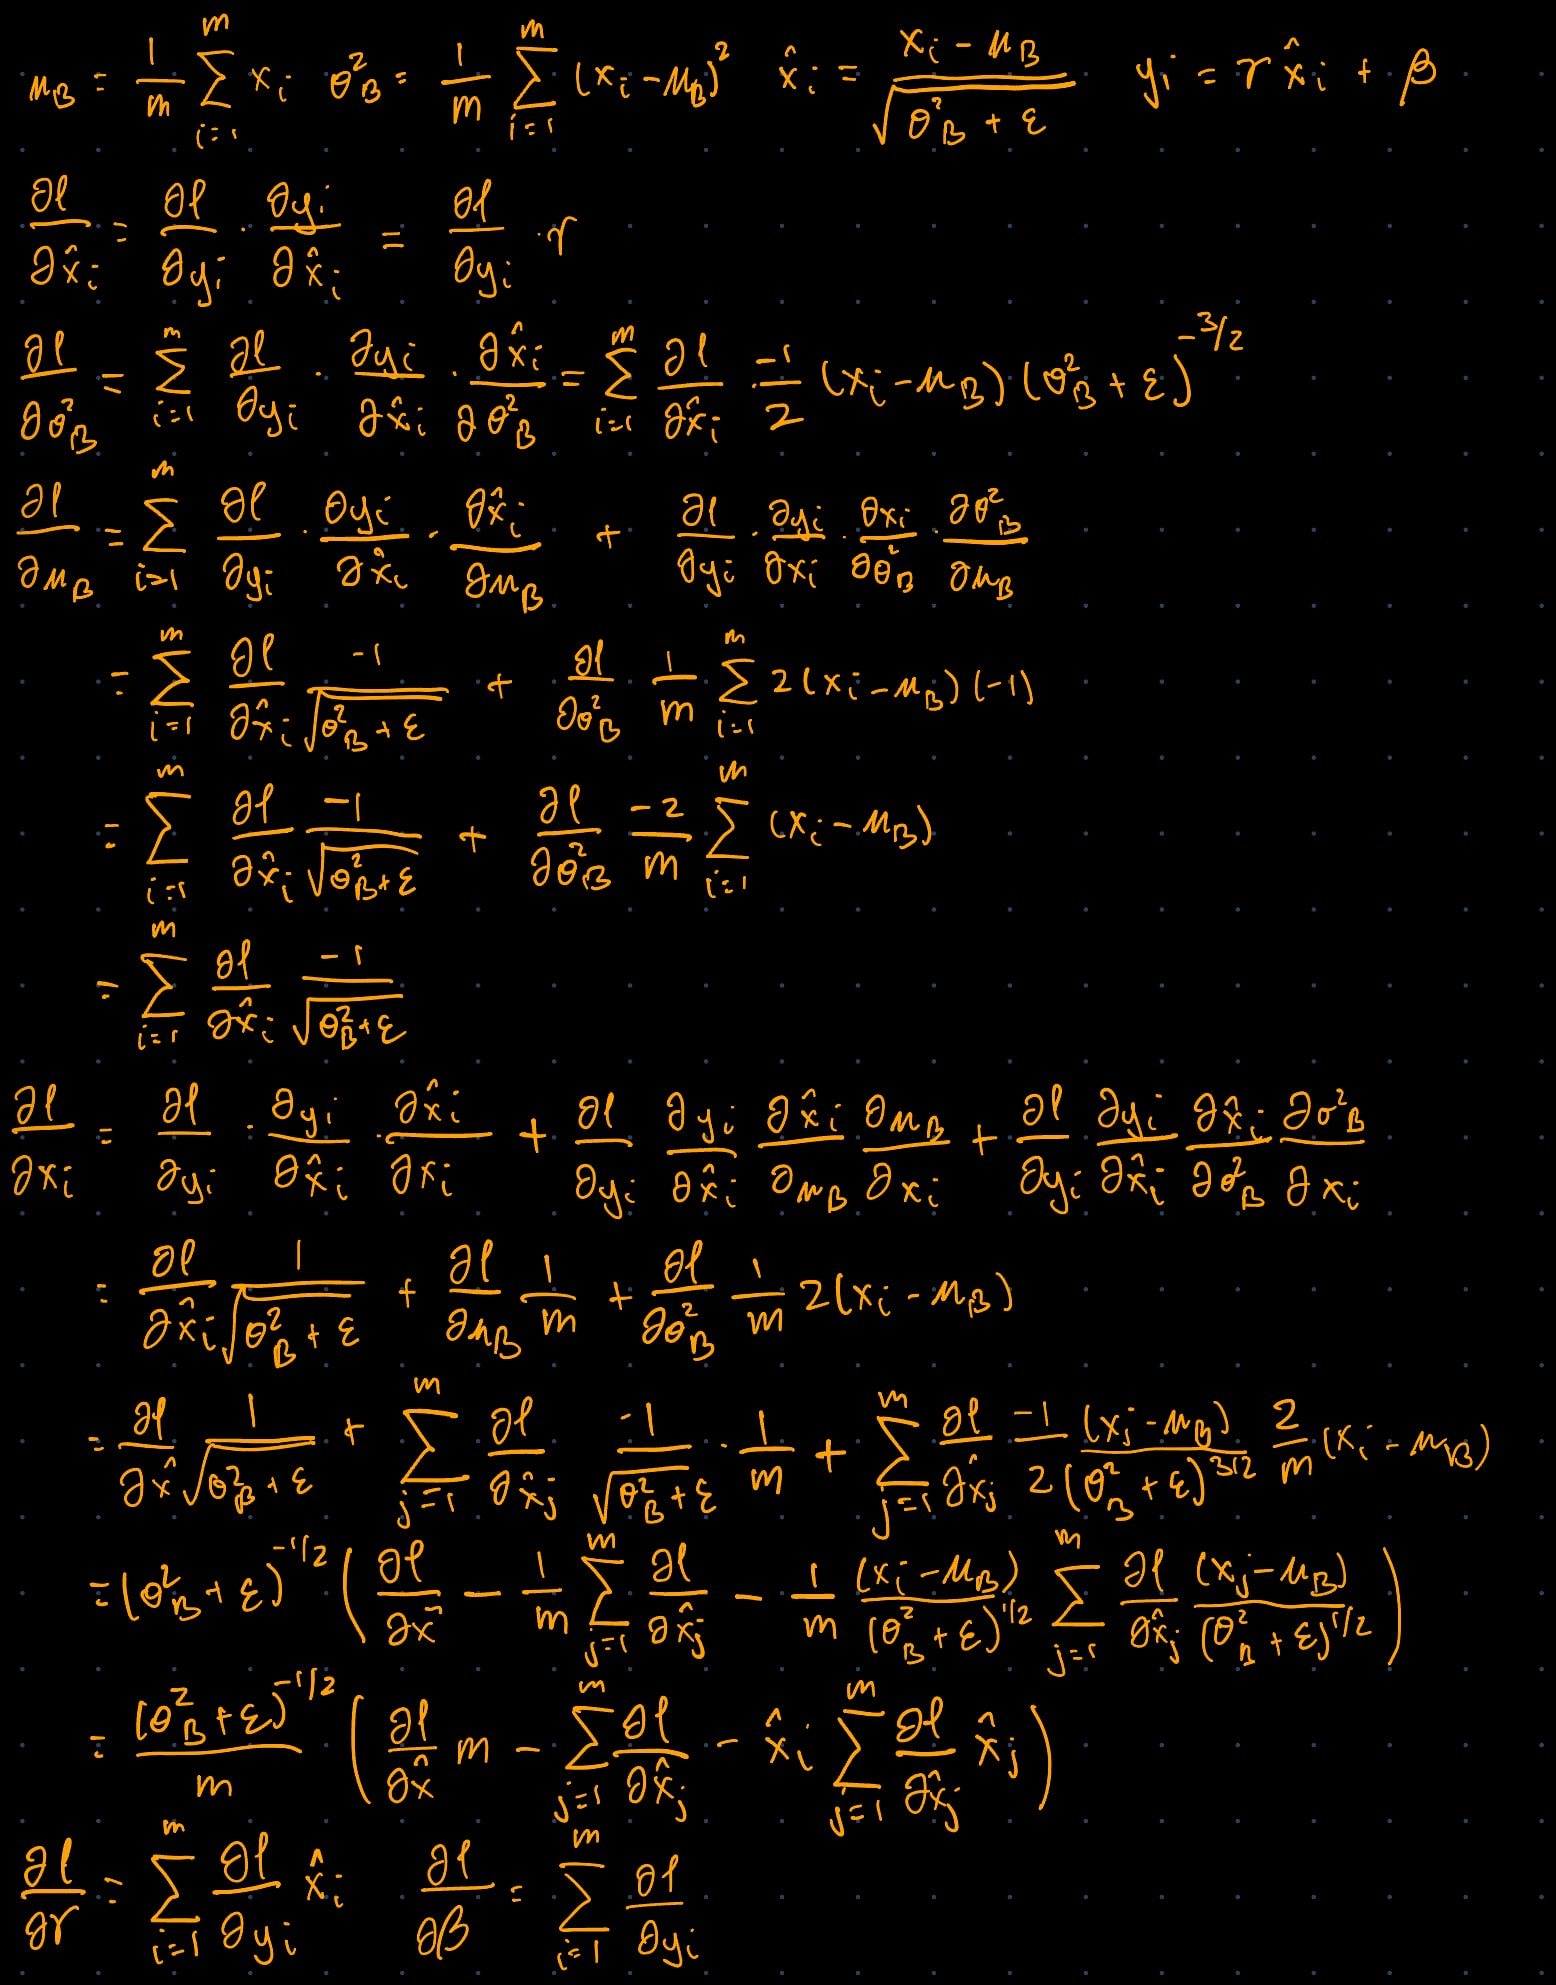 μ_B = 1/m Σ_{i=1}^{m} x_i   σ²_B = 1/m Σ_{i=1}^{m} (x_i - μ_B)²   x̂_i = (x_i - μ_B)/√(σ²_B + ε)   y_i = γ x̂_i + β
∂l/∂x̂_i = ∂l/∂y_i · ∂y_i/∂x̂_i = ∂l/∂y_i · γ
∂l/∂σ²_B = Σ_{i=1}^{m} ∂l/∂y_i · ∂y_i/∂x̂_i · ∂x̂_i/∂σ²_B = Σ_{i=1}^{m} ∂l/∂x̂_i · -1/2 (x_i - μ_B) (σ²_B + ε)^{-3/2}
∂l/∂μ_B = Σ_{i=1}^{m} ∂l/∂y_i · ∂y_i/∂x̂_i · ∂x̂_i/∂μ_B + ∂l/∂y_i · ∂y_i/∂x_i · ∂x_i/∂σ²_B · ∂σ²_B/∂μ_B
= Σ_{i=1}^{m} ∂l/∂x̂_i -1/√(σ²_B + ε) + ∂l/∂σ²_B 1/m Σ_{i=1}^{m} 2(x_i - μ_B)(-1)
= Σ_{i=1}^{m} ∂l/∂x̂_i -1/√(σ²_B + ε) + ∂l/∂σ²_B -2/m Σ_{i=1}^{m} (x_i - μ_B)
= Σ_{i=1}^{m} ∂l/∂x̂_i -1/√(σ²_B + ε)
∂l/∂x_i = ∂l/∂y_i · ∂y_i/∂x̂_i · ∂x̂_i/∂x_i + ∂l/∂y_i ∂y_i/∂x̂_i ∂x̂_i/∂μ_B ∂μ_B/∂x_i + ∂l/∂y_i ∂y_i/∂x̂_i ∂x̂_i/∂σ²_B ∂σ²_B/∂x_i
= ∂l/∂x̂_i 1/√(σ²_B + ε) + ∂l/∂μ_B 1/m + ∂l/∂σ²_B 1/m 2(x_i - μ_B)
= ∂l/∂x̂ 1/√(σ²_B + ε) + Σ_{j=1}^{m} ∂l/∂x̂_j -1/√(σ²_B + ε) · 1/m + Σ_{j=1}^{m} ∂l/∂x̂_j -1/2 (x_j - μ_B)/(σ²_B + ε)^{3/2} 2/m (x_i - μ_B)
= (σ²_B + ε)^{-1/2} ( ∂l/∂x̂ - 1/m Σ_{j=1}^{m} ∂l/∂x̂_j - 1/m (x_i - μ_B)/(σ²_B + ε)^{1/2} Σ_{j=1}^{m} ∂l/∂x̂_j (x_j - μ_B)/(σ²_B + ε)^{1/2} )
= (σ²_B + ε)^{-1/2}/m ( ∂l/∂x̂ m - Σ_{j=1}^{m} ∂l/∂x̂_j - x̂_i Σ_{j=1}^{m} ∂l/∂x̂_j x̂_j )
∂l/∂γ = Σ_{i=1}^{m} ∂l/∂y_i x̂_i   ∂l/∂β = Σ_{i=1}^{m} ∂l/∂y_i